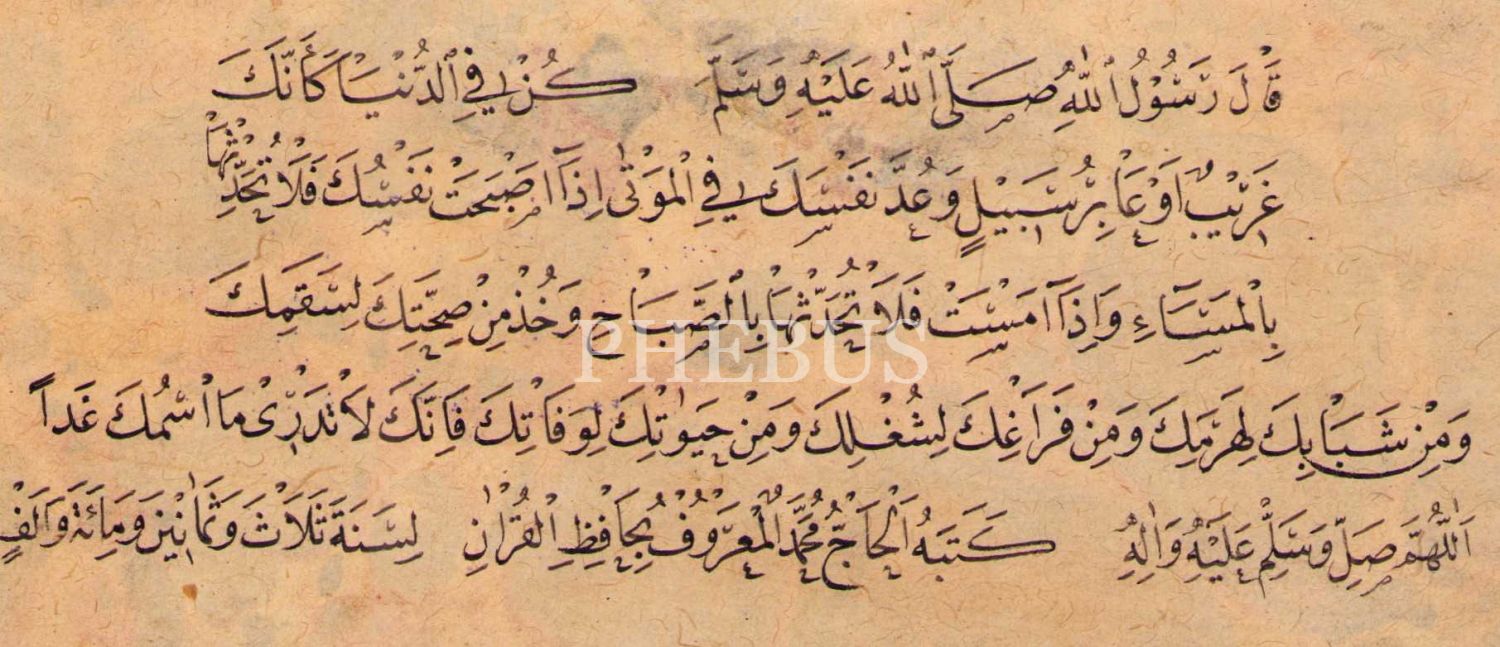 قَالَ رَسُوْلُ اللّٰهِ صَلَّى اللّٰهُ عَلَيْهِ وَسَلَّمَ كُنْ فِي الدُّنْيَا كَأَنَّكَ
غَرِيْبٌ اَوْ عَابِرُ سَبِيْلٍ وَعُدَّ نَفْسَكَ فِي الْمَوْتٰى اِذَآ اَصْبَحَتْ نَفْسُكَ فَلَا تُحَدِّثْهَا
بِالْمَسَآءِ وَاِذَآ اَمْسَتْ فَلَا تُحَدِّثْهَا بِالصَّبَاحِ وَخُذْ مِنْ صِحَّتِكَ لِسَقَمِكَ
PHEBUS
وَمِنْ شَبَابِكَ لِهَرَمِكَ وَمِنْ فَرَاغِكَ لِشُغْلِكَ وَمِنْ حَيٰوتِكَ لِوَفَاتِكَ فَاِنَّكَ لَا تَدْرِيْ مَا اسْمُكَ غَداً
اَللّٰهُمَّ صَلِّ وَسَلِّمْ عَلَيْهِ وَاٰلِهِ كَتَبَهُ اَلْحَاجُّ مُحَمَّدٌ الْمَعْرُوْفُ بِحَافِظِ الْقُرْاٰنِ لِسَنَةَ ثَلَاثَ وَثَمَانِيْنَ وَمِائَةَ وَاَلْفٍ